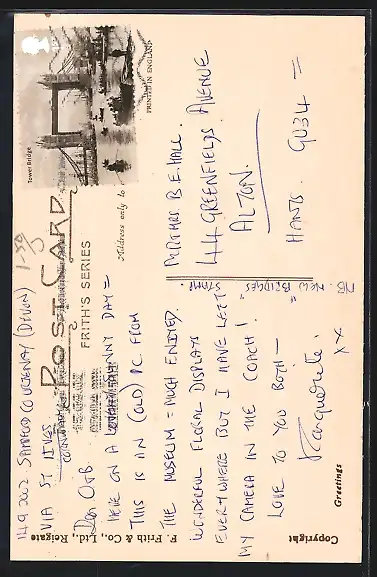 14.9.2002 SAMPFORD COURTENAY (DEVON)
VIA ST IVES
Dear O+B.
HERE ON A SUNNY DAY =
THIS IS AN (OLD) PC FROM
THE MUSEUM = MUCH ENJOYED.
WONDERFUL FLORAL DISPLAYS
EVERYWHERE BUT I HAVE LEFT
MY CAMERA IN THE COACH!
LOVE TO YOU BOTH —
Marguerite.
XX
POST CARD
FRITH'S SERIES
Address only to
1-50
Tower Bridge
1st
PRINTED IN ENGLAND
MR+MRS B E HALL.
44 GREENFIELDS AVENUE
ALTON.
HANTS. GU34 =
NB. NEW "BRIDGES"
STAMP.
F. Frith & Co., Ltd., Reigate
Greetings
Copyright